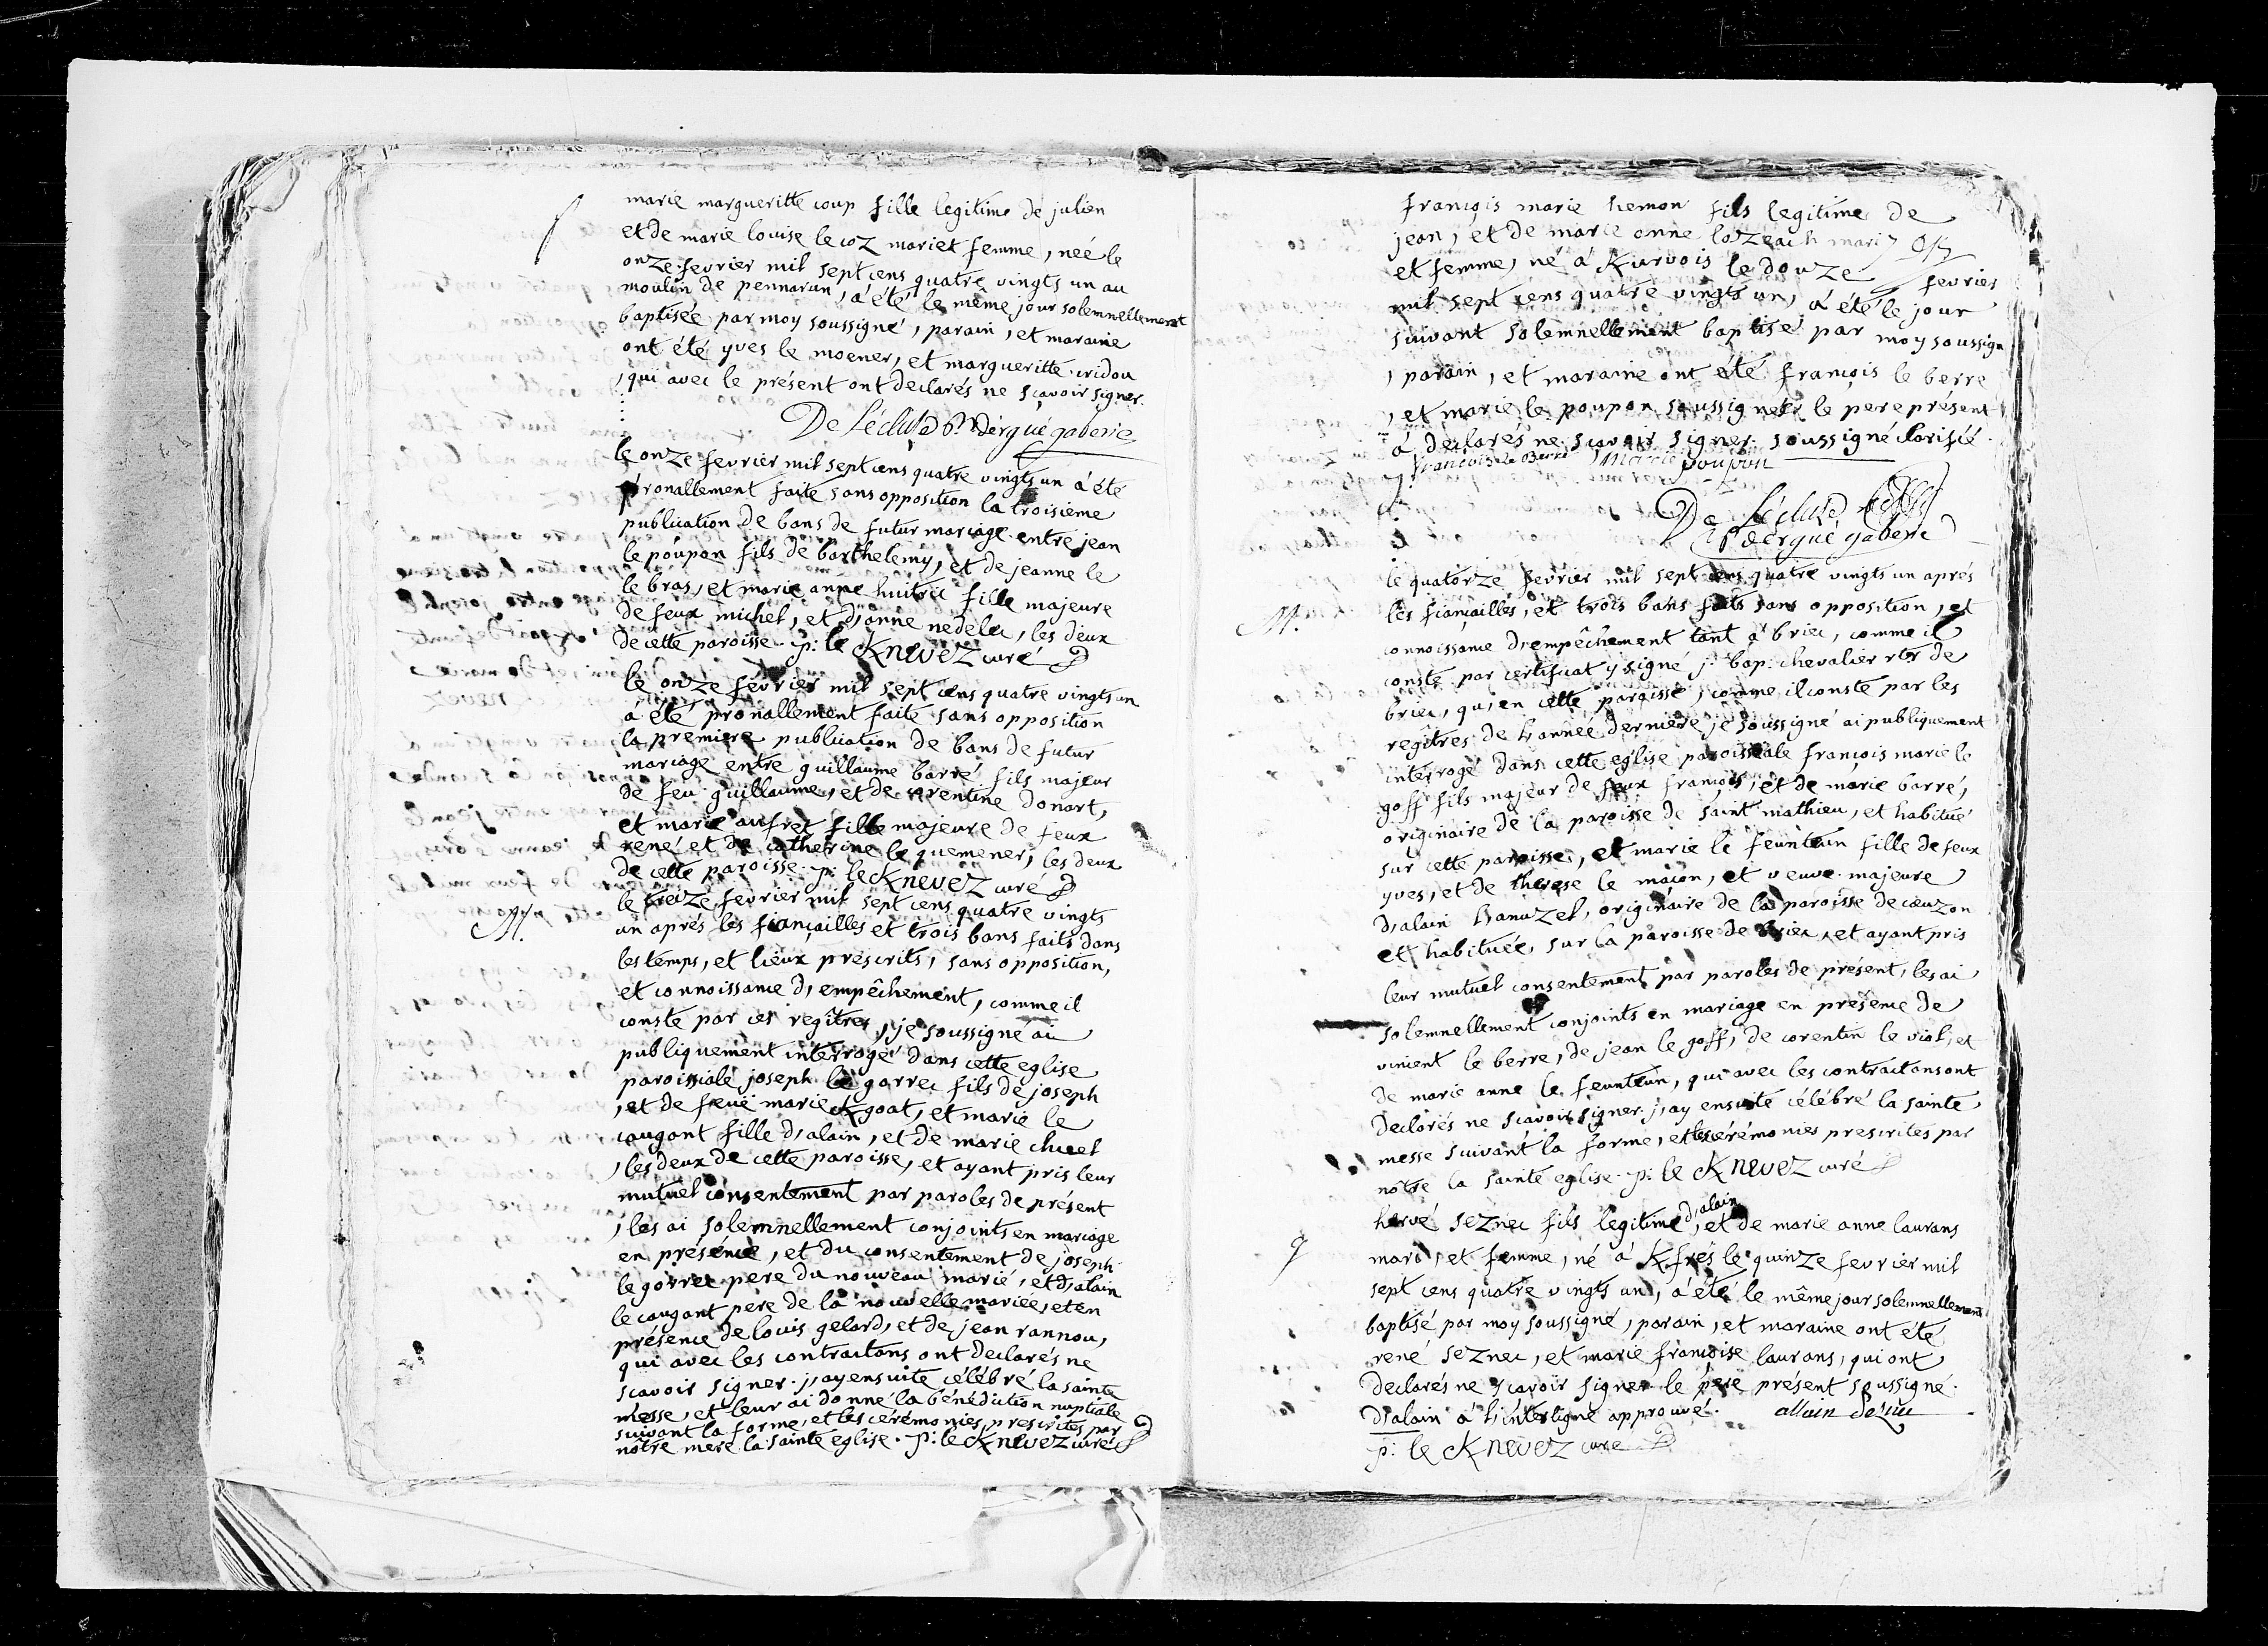 marie margueritte coup fille legitime de julien
et de marie louise le coz mari et femme, née le
onze fevrier mil sept cens quatre vingts un au
moulin de pennarun, a été le même jour solemnellement
baptisée par moy soussigné, parain, et maraine
ont été yves le moener, et margueritte cridou
, qui avec le présent ont declarés ne scavoir signer.
De Lécluse Dergué gaberic
le onze fevrier mil sept cens quatre vingts un a été
pronallement faite sans opposition la troisieme
publication de bans de futur mariage entre jean
le poupon fils de barthelemy, et de jeanne le
le bras, et marie anne huitric fille majeure
de feux michel, et d'anne nedelec, les deux
de cette paroisse. p: le Knevez curé
le onze février mil sept cens quatre vingts un
a été pronallement faite sans opposition
la premiere publication de bans de futur
mariage entre guillaume barré fils majeur
de feu guillaume, et de corentine donart,
et marie aufret fille majeure de feux
rené et de catherine le quemener, les deux
de cette paroisse. p: le Knevez curé
M.
le treize fevrier mil sept cens quatre vingts
un aprés les fiançailles et trois bans faits dans
les temps, et lieux prescrits, sans opposition,
et connoissance d'empêchement, comme il
conste par ces regîtres, je soussigné ai
publiquement interrogé dans cette eglise
paroissiale joseph le gorrec fils de joseph
, et de feue marie Kgoat, et marie le
caugant fille d'alain, et de marie
, les deux de cette paroisse, et ayant pris leur
mutuel consentement par paroles de présent
, les ai solemnellement conjoints en mariage
en présence, et du consentement de joseph
le gorrec pere du nouveau marié, et d'alain
le caugant pere de la nouvelle mariée, et en
présence de louis gelard, et de jean rannou,
qui avec les contractans ont declarés ne
scavoir signer. j'ay ensuite célébré la sainte
messe, et leur ai donné la bénédiction nuptiale
suivant la forme, et les cérémonies prescrites par
nôtre mere la sainte eglise. p: le Knevez curé
françois marie hemon fils legitime de
jean, et de marie anne lozeach mari
et femme, né á Kurvois le douze fevrier
mil sept cens quatre vingts un, a été le jour
suivant solemnellement baptisé par moy soussigné
, parain, et maraine ont été françois le berre
, et marie le poupon soussignés le pere présent
á declarés ne scavoir signer. soussigné
francois le Berre Marie poupon
De Lécluse
dergué gaberic
M.
le quatorze fevrier mil sept cens quatre vingts un aprés
les fiançailles, et trois bans faits sans opposition, et
connoissance d'empêchement tant a briec, comme il
conste par certificat y signé j: bap: chevalier rtr de
briec, qu'en cette paroisse, comme il conste par les
regîtres de l'année derniere, je soussigné ai publiquement
interrogé dans cette eglise paroissiale françois marie le
goff fils majeur de feux françois, et de marie barré,
originaire de la paroisse de saint mathieu, et habitué
sur cette paroisse, et marie le feunteun fille de feux
yves, et de therese le maçon, et veuve majeure
d'alain hanuzel, originaire de la paroisse de cuzon
et habituée sur la paroisse de briec, et ayant pris
leur mutuel consentement par paroles de présent, les ai
solemnellement conjoints en mariage en presence de
vincent le berre, de jean le goff, de corentin le viol, et
de marie anne le feunteun, qui avec les contractans ont
declarés ne scavoir signer. j'ay ensuite célébré la sainte
messe suivant la forme, et les cérémonies prescrites par
nôtre la sainte eglise. p: le Knevez curé
hervé seznec fils legitime d'alain, et de marie anne laurans
mari, et femme, né á Kfrés le quinze fevrier mil
sept cens quatre vingts un, a été le même jour solemnellement
baptisé par moy soussigné, parain, et maraine ont été
rené seznec, et marie françoise laurans, qui ont
declarés ne scavoir signer. le pere présent soussigné.
d'alain á l'interligne approuvé. allain Seznec
p: le Knevez curé